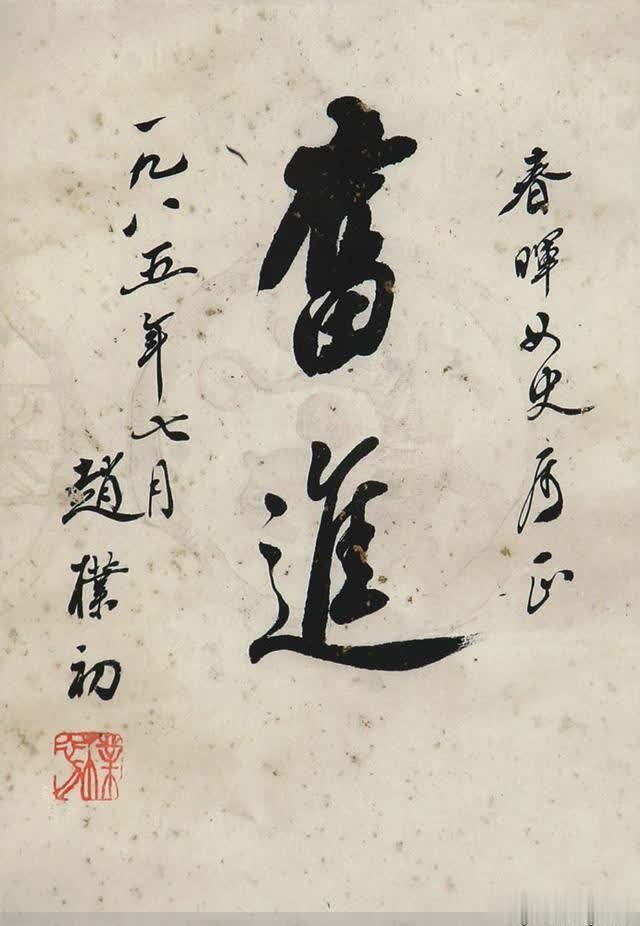 春暉女史属正
奮進
一九八五年七月
趙樸初
樸初